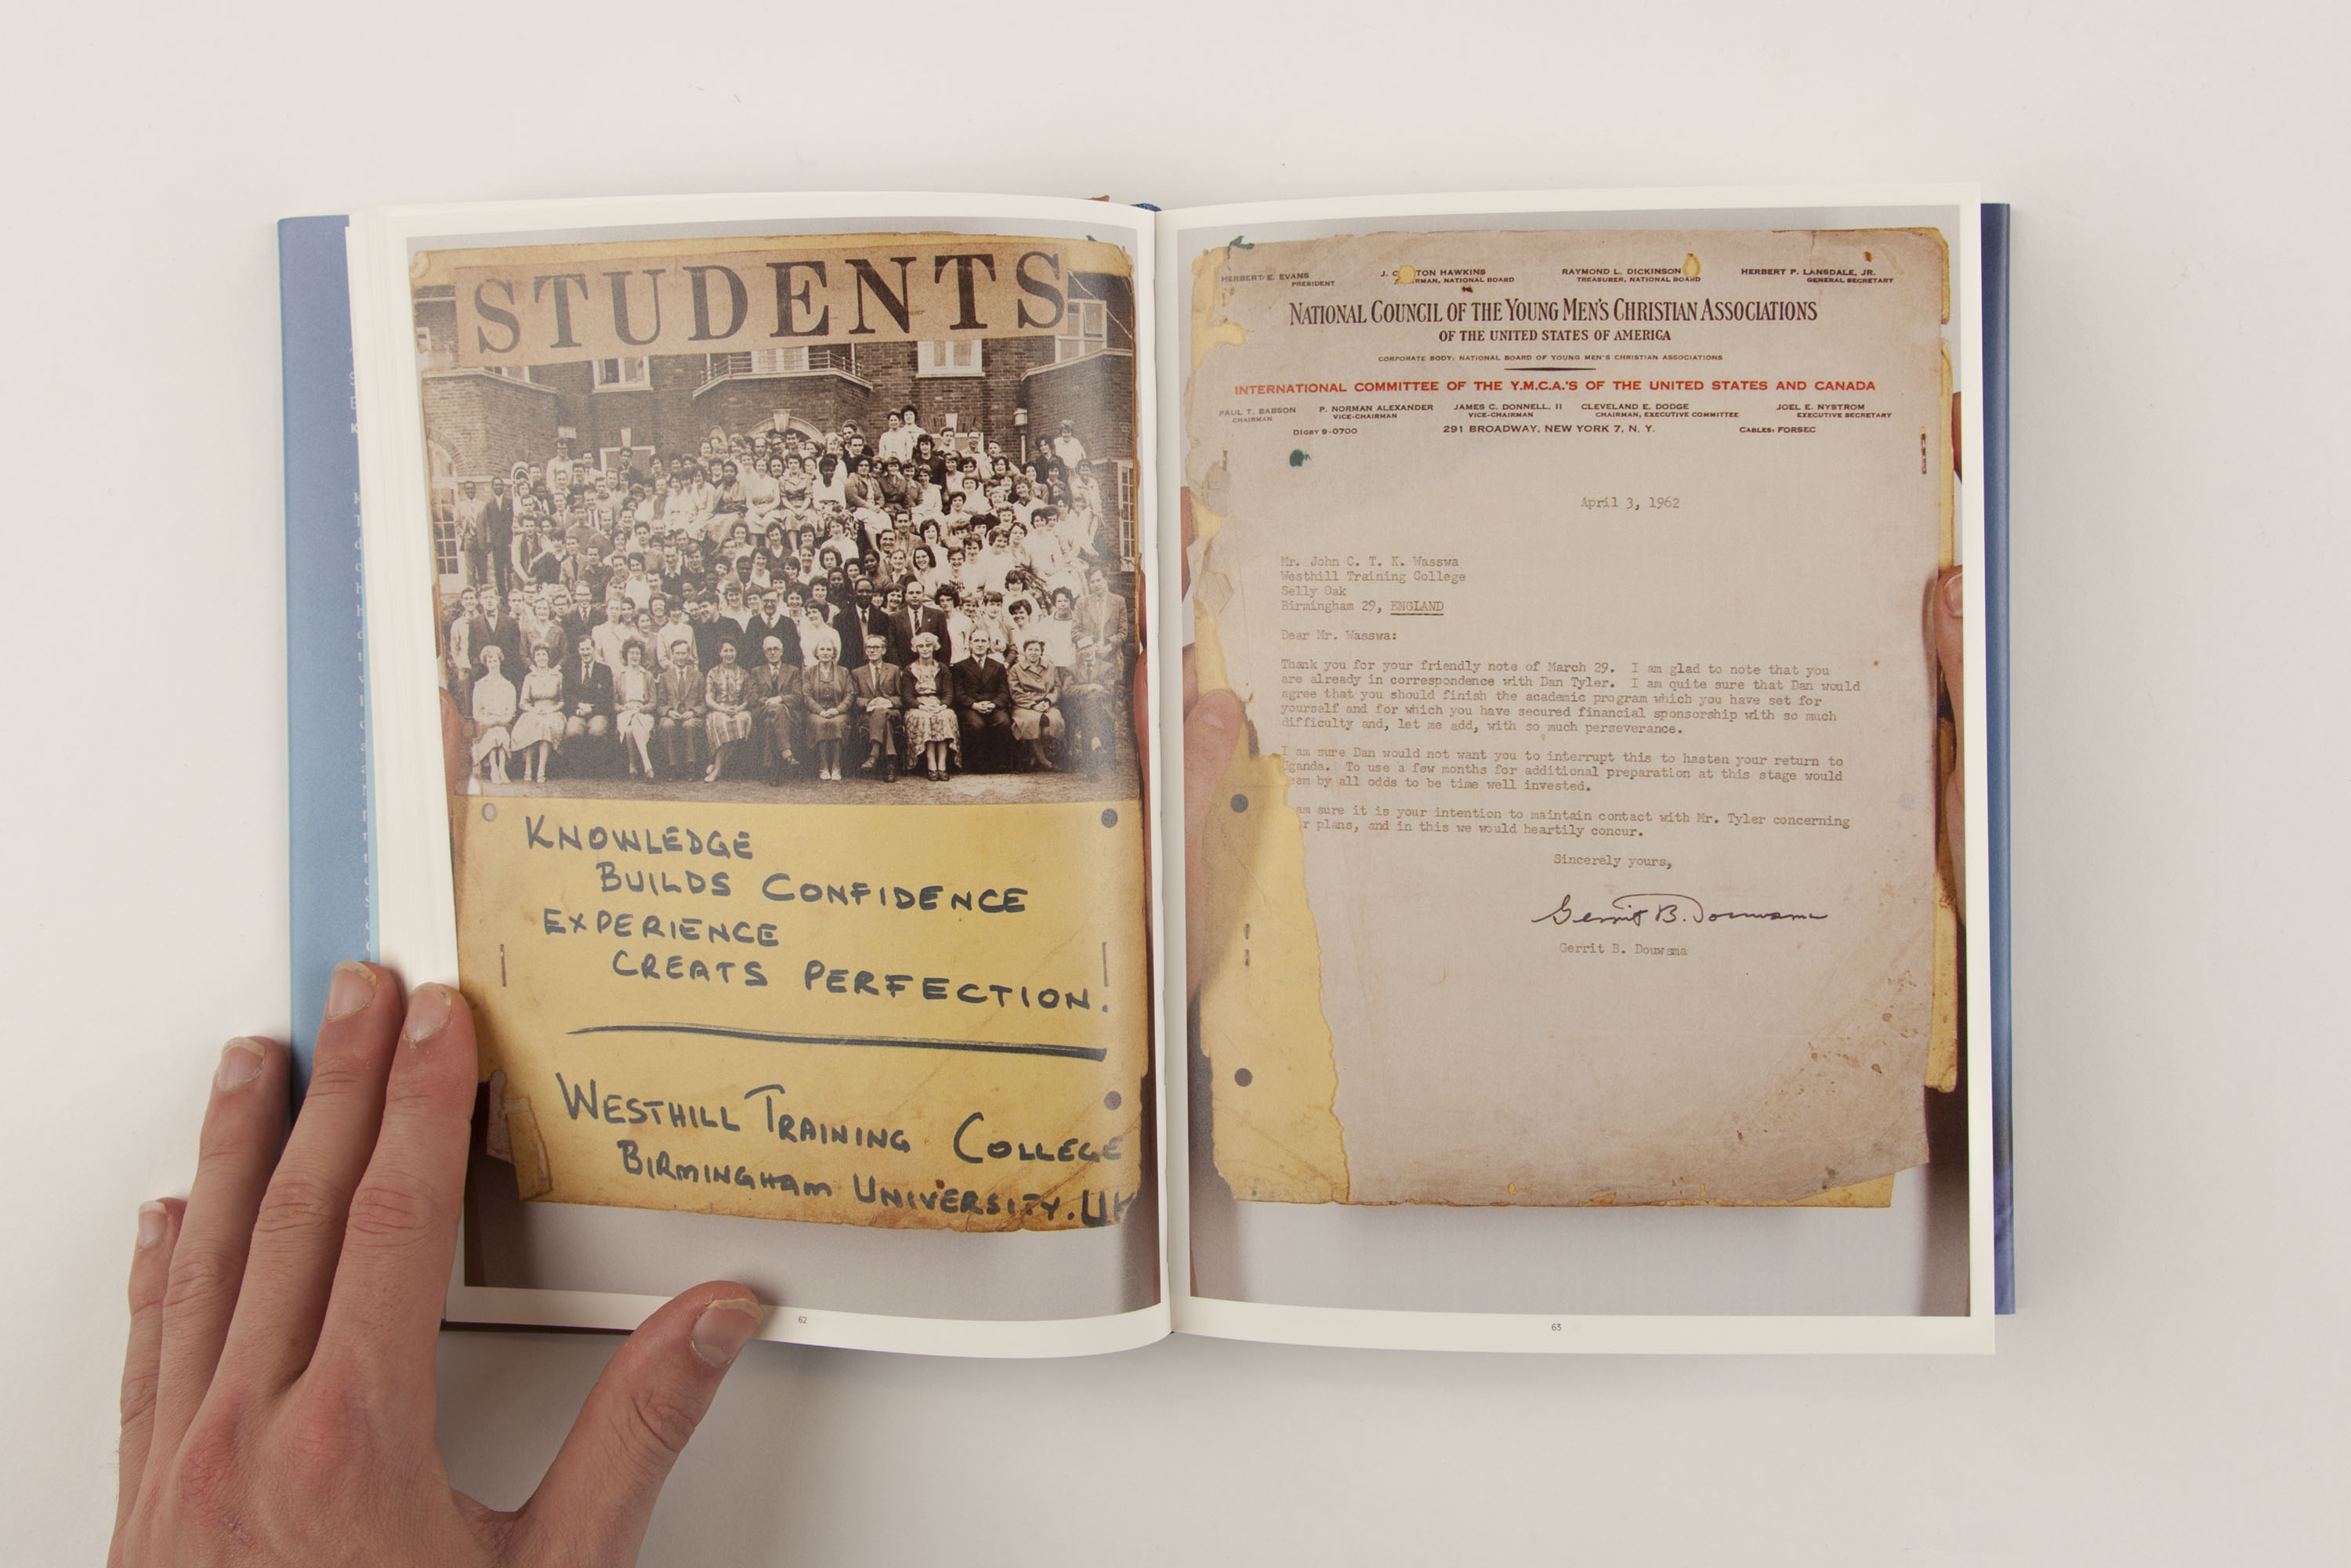 STUDENTS
KNOWLEDGE
BUILDS CONFIDENCE
EXPERIENCE
CREATS PERFECTION!
WESTHILL TRAINING COLLEGE
BIRMINGHAM UNIVERSITY. UK
62
HERBERT E. EVANS
PRESIDENT
J. C TON HAWKINS
RMAN, NATIONAL BOARD
RAYMOND L. DICKINSON
TREASURER, NATIONAL BOARD
HERBERT P. LANSDALE, JR.
GENERAL SECRETARY
NATIONAL COUNCIL OF THE YOUNG MEN'S CHRISTIAN ASSOCIATIONS
OF THE UNITED STATES OF AMERICA
CORPORATE BODY: NATIONAL BOARD OF YOUNG MEN'S CHRISTIAN ASSOCIATIONS
INTERNATIONAL COMMITTEE OF THE Y.M.C.A.'S OF THE UNITED STATES AND CANADA
PAUL T. BABSON
CHAIRMAN
P. NORMAN ALEXANDER
VICE-CHAIRMAN
JAMES C. DONNELL, II
VICE-CHAIRMAN
CLEVELAND E. DODGE
CHAIRMAN, EXECUTIVE COMMITTEE
JOEL E. NYSTROM
EXECUTIVE SECRETARY
DIGBY 9-0700
291 BROADWAY, NEW YORK 7, N. Y.
CABLES: FORSEC
April 3, 1962
Mr. John C. T. K. Wasswa
Westhill Training College
Selly Oak
Birmingham 29, ENGLAND
Dear Mr. Wasswa:
Thank you for your friendly note of March 29. I am glad to note that you
are already in correspondence with Dan Tyler. I am quite sure that Dan would
agree that you should finish the academic program which you have set for
yourself and for which you have secured financial sponsorship with so much
difficulty and, let me add, with so much perseverance.
I am sure Dan would not want you to interrupt this to hasten your return to
Uganda. To use a few months for additional preparation at this stage would
em by all odds to be time well invested.
am sure it is your intention to maintain contact with Mr. Tyler concerning
r plans, and in this we would heartily concur.
Sincerely yours,
Gerrit B. Douwsma
Gerrit B. Douwsma
63